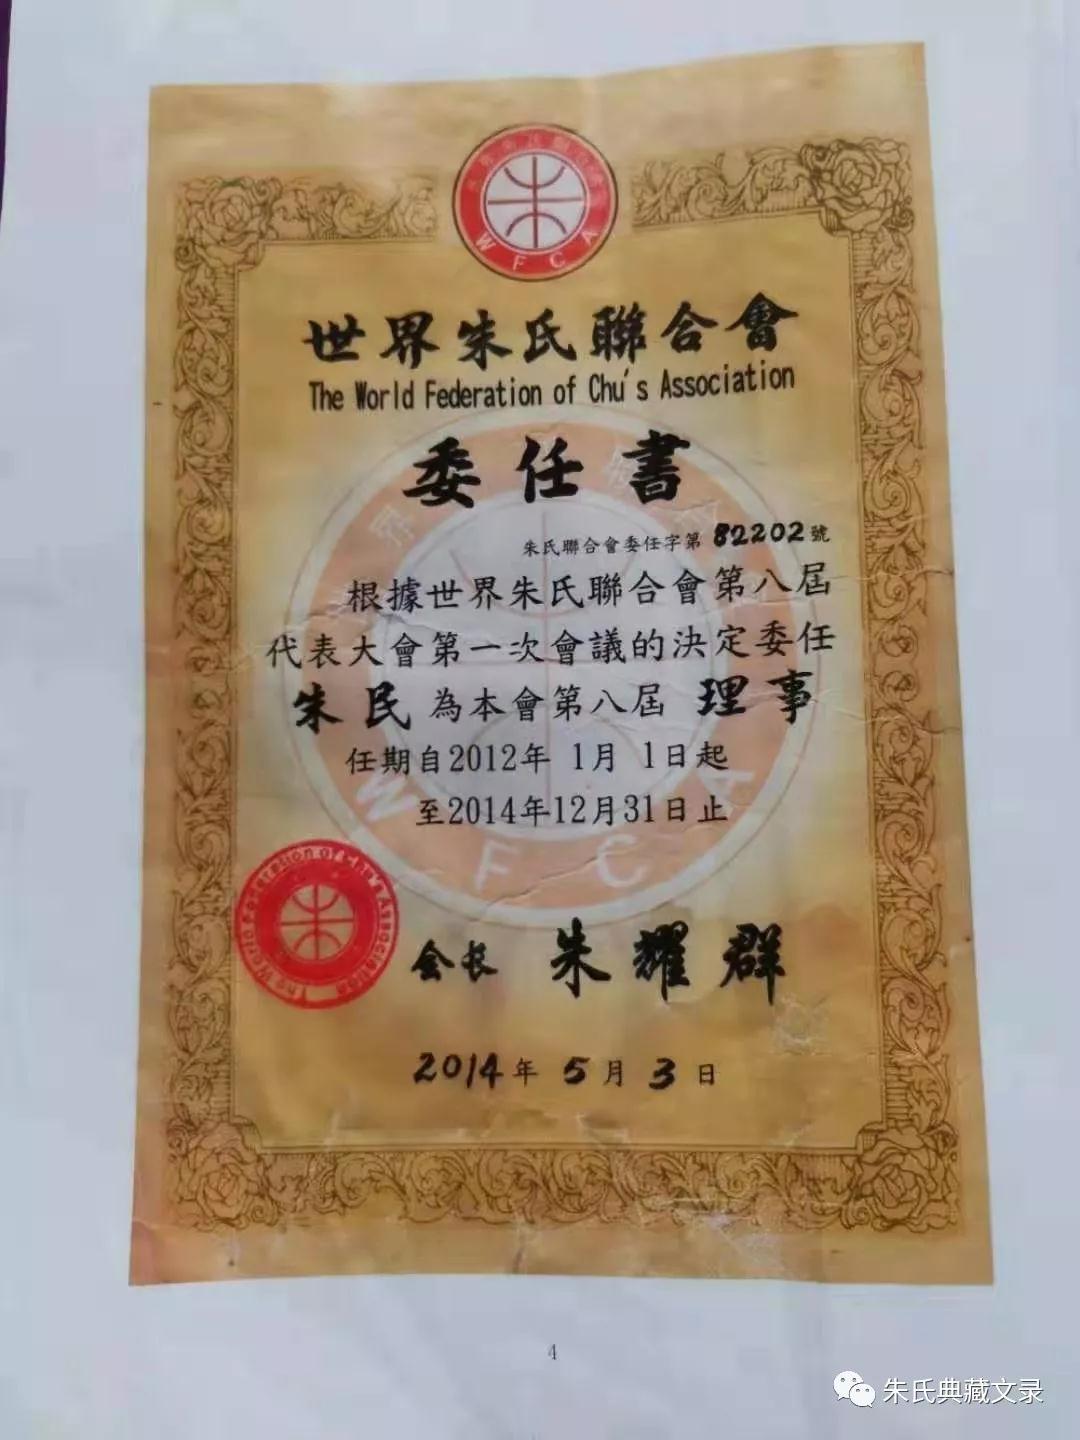 世界朱氏聯合會
WFCA
世界朱氏聯合會
The World Federation of Chu's Association
委任書
朱氏聯合會委任字第 82202 號
根據世界朱氏聯合會第八屆
代表大會第一次會議的決定委任
朱民 為本會第八屆 理事
任期自2012年 1月 1日起
至2014年12月31日止
WFCA
The World Federation of Chu's Association
会长 朱耀群
2014年 5月 3日
4
朱氏典藏文录